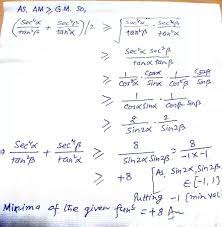 AS, AM ⩾ G.M. So,
(sec⁴α/tan²β + sec⁴β/tan²α)/2 ⩾ √(sec⁴α/tan²β · sec⁴β/tan²α)
⩾ sec²α sec²β / tanα tanβ
⩾ 1/cos²α · cosα/sinα · 1/cos²β · cosβ/sinβ
⩾ 1/cosα sinα · 1/cosβ sinβ
⩾ 2/sin2α · 2/sin2β
⇒ sec⁴α/tan²β + sec⁴β/tan²α ⩾ 8/sin2α sin2β = 8/-1 x -1
⩾ +8 [As, sin2α, sin2β ∈ [-1, 1]
Putting -1 (min val)
Minima of the given funⁿ = +8 Ans